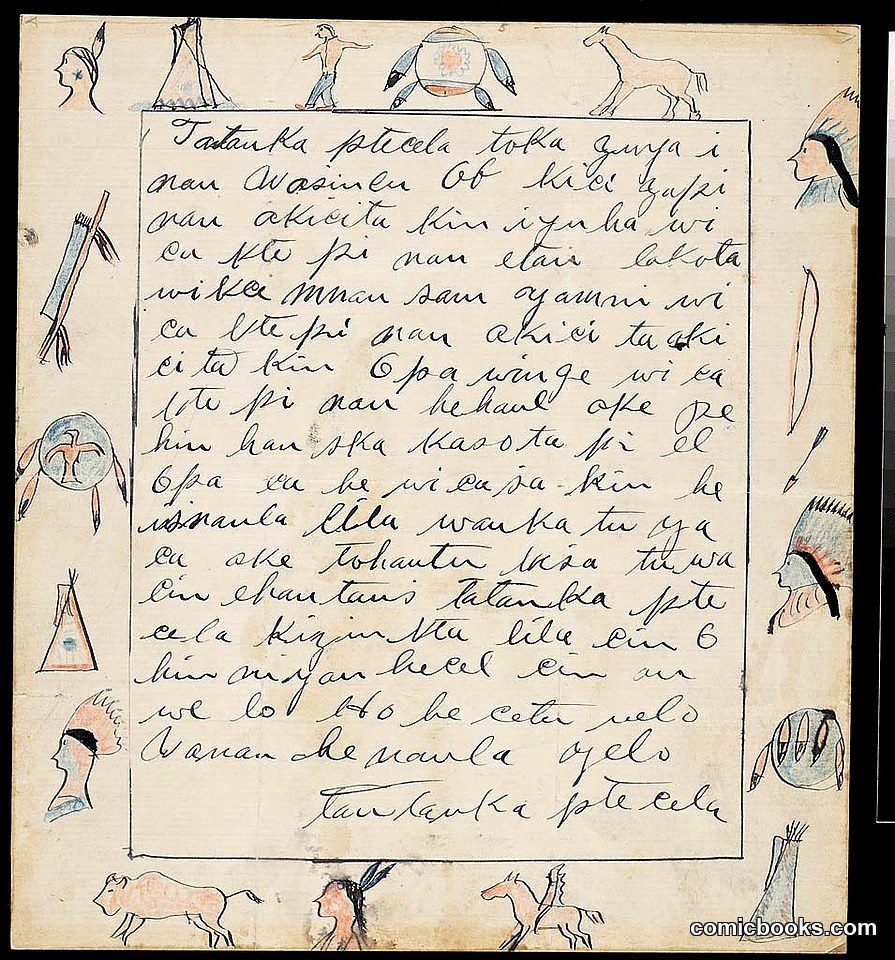 Tatanka ptecela toka zuya i
nan Wasincu Ob kici zapi
nan akicita kin iyuha wi
ca kte pi nan etan lakota
wikce mnan sam oyamni wi
ca kte pi nan akici ta aki
ci ta kin 6 pa winge wi ca
kte pi nan hehanl ake pe
hin han ska kasota pi el
6pa ca he wicasa kin he
isnanla lila wanka tu ya
ca ake tohantu kisa tuwa
cin ehantans tatanka pte
cela kizin kta lila cin 6
hin niyan hecel cin on
we lo Ho he cetu velo
Wanan he nanla oyelo
Tantanka ptecela
comicbooks.com